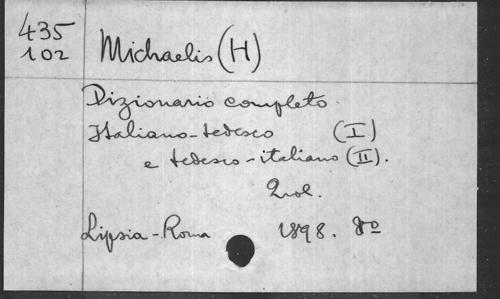 435
102
Michaelis (H)
Dizionario completo
Italiano-tedesco (I)
e tedesco-italiano (II).
2 vol.
Lipsia-Roma 1898. 8º